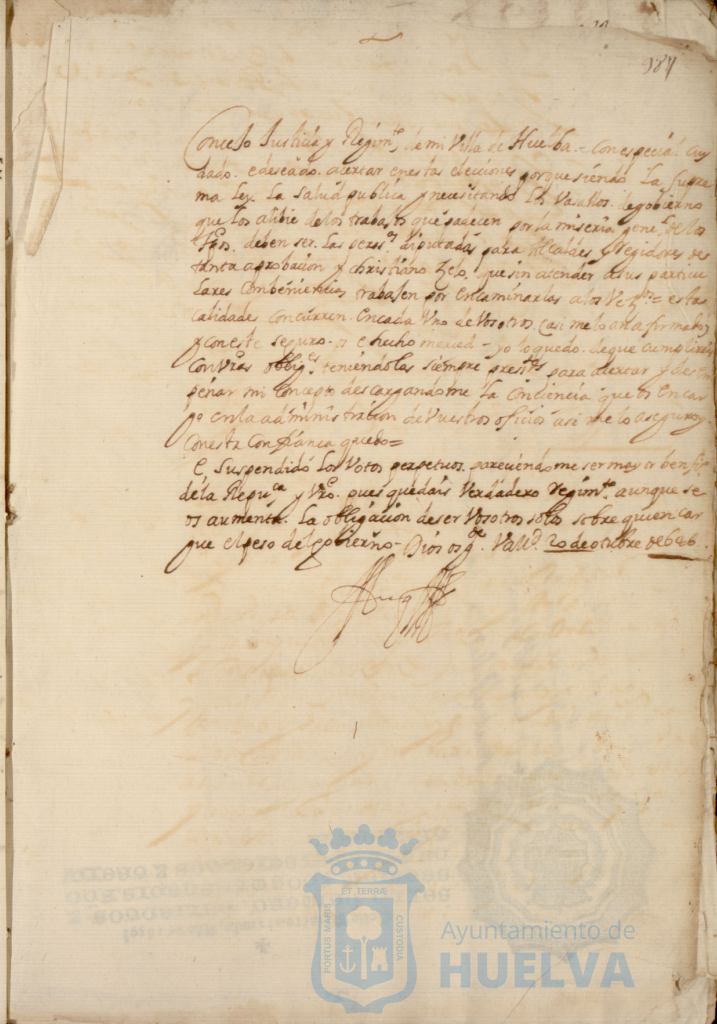 987
Concejo Justicia y Regim.to de mi Villa de Huelba = con especial cuy
dado e deseado acertar en estas elecciones porque siendo La supre
ma Ley La Salud publica y necesitando Los Vasallos de gobierno
que los alibie de los trabajos que padecen por la miseria gene.l de los
tpos. deben ser Las perss.s diputadas para Alcaldes y Regidores de
tanta aprobacion y christiano zelo que sin atender a sus particu
lares combeniencias trabajen por encaminarlas a los Vez.os = estas
calidades concurren en cada Uno de Vosotros casi me lo an afirmado
y con este seguro os e hecho merced - yo lo quedo de que cumplireis
con Vras oblig.s teniendolas siempre pres.tes para acertar y desem
peñar mi concepto descargandome La Conciencia que os encar
go en la administracion de Vuestros oficios asi me lo aseguro y
con esta confianca quedo =
E suspendido Los Votos perpetuos pareciendome ser mayor benefi.o
de la Repu.ca y Vro. pues quedais Verdadero regim.to aunque se
os aumenta La obligacion de ser Vosotros solos sobre quien car
gue el peso del gobierno - Dios os g.de Vall.d 20 de otubre de 646
ET TERRÆ
PORTUS MARIS
CUSTODIA
Ayuntamiento de
HUELVA